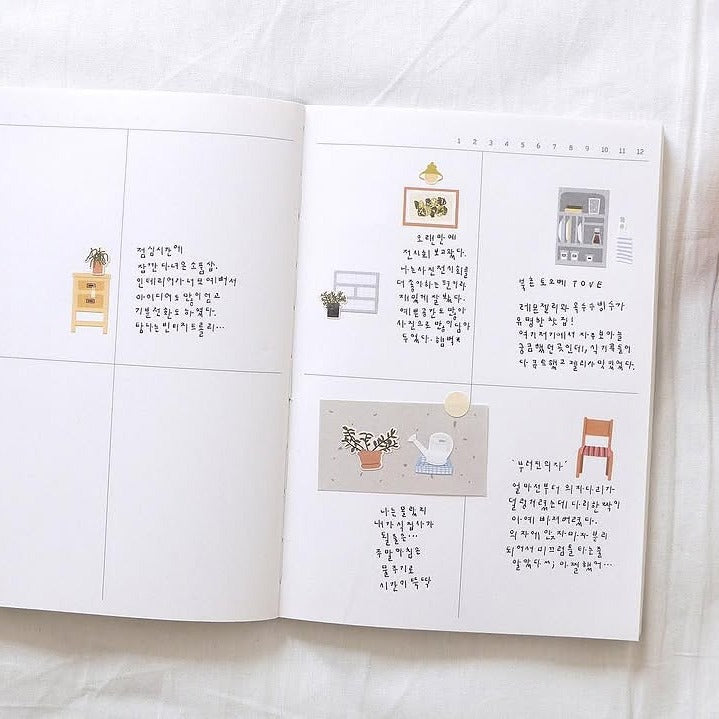 점심시간에
잠깐 다녀온 소품샵.
인테리어가 너무 예뻐서
아이디어도 많이 얻고
기분전화도 하였다.
탐나는 빈티지 트롤리...
1 2 3 4 5 6 7 8 9 10 11 12
오랜만에
전시회 보고왔다.
나는 사진전시회를
더 좋아하는 편이라
재밌게 잘 봤다.
예쁜공간도 많아
사진으로 많이 담아
두었다. 햄벅*
북촌 도오베 TOVE
레몬젤리와 옥수수빙수가
유명한 찻집!
여기저기에서 자주 보아늘
궁금했던 곳인데, 식기류들이
다 굳 했고 젤리 맛있었다.
나는 몰랐지
내가 식집사가
될 줄은...
주말아침은
물주기로
시간이 뚝딱
'부러진 의자'
얼마전부터 의자다리가
덜렁거렸는데 다리 한짝이
아예 빠져버렸다.
의자에 앉자마자 분리
되어서 미끄럼틀 타는줄
알았다ㅆ; 아찔했어...